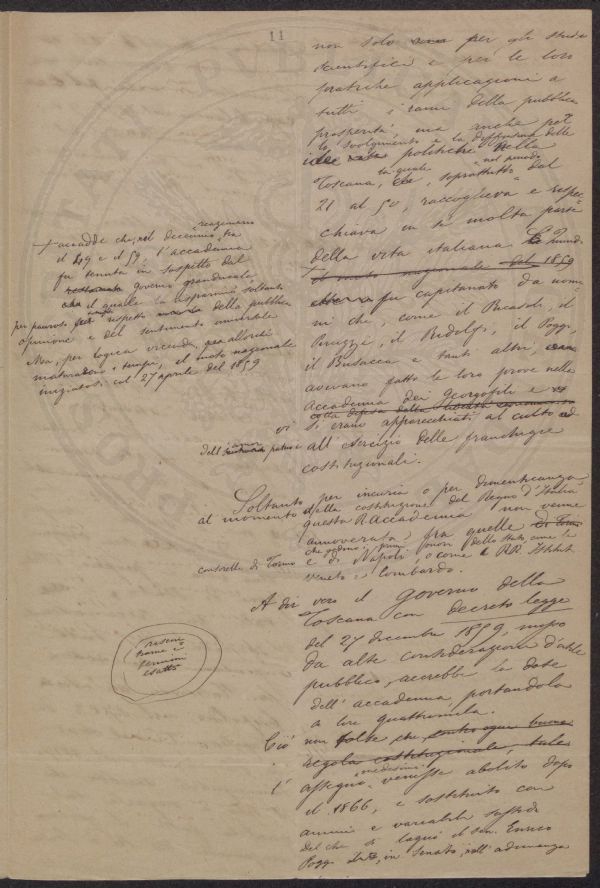 11
non solo per gli studi
scientifici e per le loro
pratiche applicazioni a
tutti i rami della pubblica
prosperità, ma anche pel
lo svolgimento e la diffusione delle
idee politiche nella
la quale nel periodo
Toscana, che, soprattutto dal
21 al 50, raccoglieva e
chiava in se molta parte
della vita italiana. E quindi
il moto nazionale del 1859
fu capitanato da uomi
ni che, come il Ricasoli, il
il Ridolfi, il Poggi,
il Busacca e tanti altri,
avevano fatto le loro prove nella
Accademia dei Georgofili e
colla difesa della libertà
vi si erano apparecchiati al culto ed
dell'amor patrio e all'esercizio delle franchigie
costituzionali.
+ accadde che, nel decennio, tra
il 49 e il 59, l'accademia
fu tenuta in sospetto dal
governo granducale
il quale la risparmiò soltanto
per pauroso rispetto della pubblica
opinione e del sentimento universale
Ma, per logica vicenda, era allorchè
maturarono i tempi, il moto nazionale
iniziatosi col 27 aprile del 1859
Soltanto, per incuria o per dimenticanza
al momento della costituzione del Regno d'Italia
questa R. Accademia non venne
annoverata fra quelle
consorelle di Torino e di Napoli, o come i RR. Istituti
veneto e lombardo.
A dir vero il Governo della
Toscana con decreto legge
del 27 dicembre 1859, mosso
da alte considerazioni d'utile
pubblico, accrebbe la dote
dell'accademia, portandola
a lire quattromila.
Ciò non tolse che contro ogni buona
regola costituzionale, tale
medesimo
l'assegno venisse abolito dopo
il 1866, e sostituito con
annui e variabili sussidi
del che si lagnò il sen. Enrico
Poggi in Senato, nell'adunanza